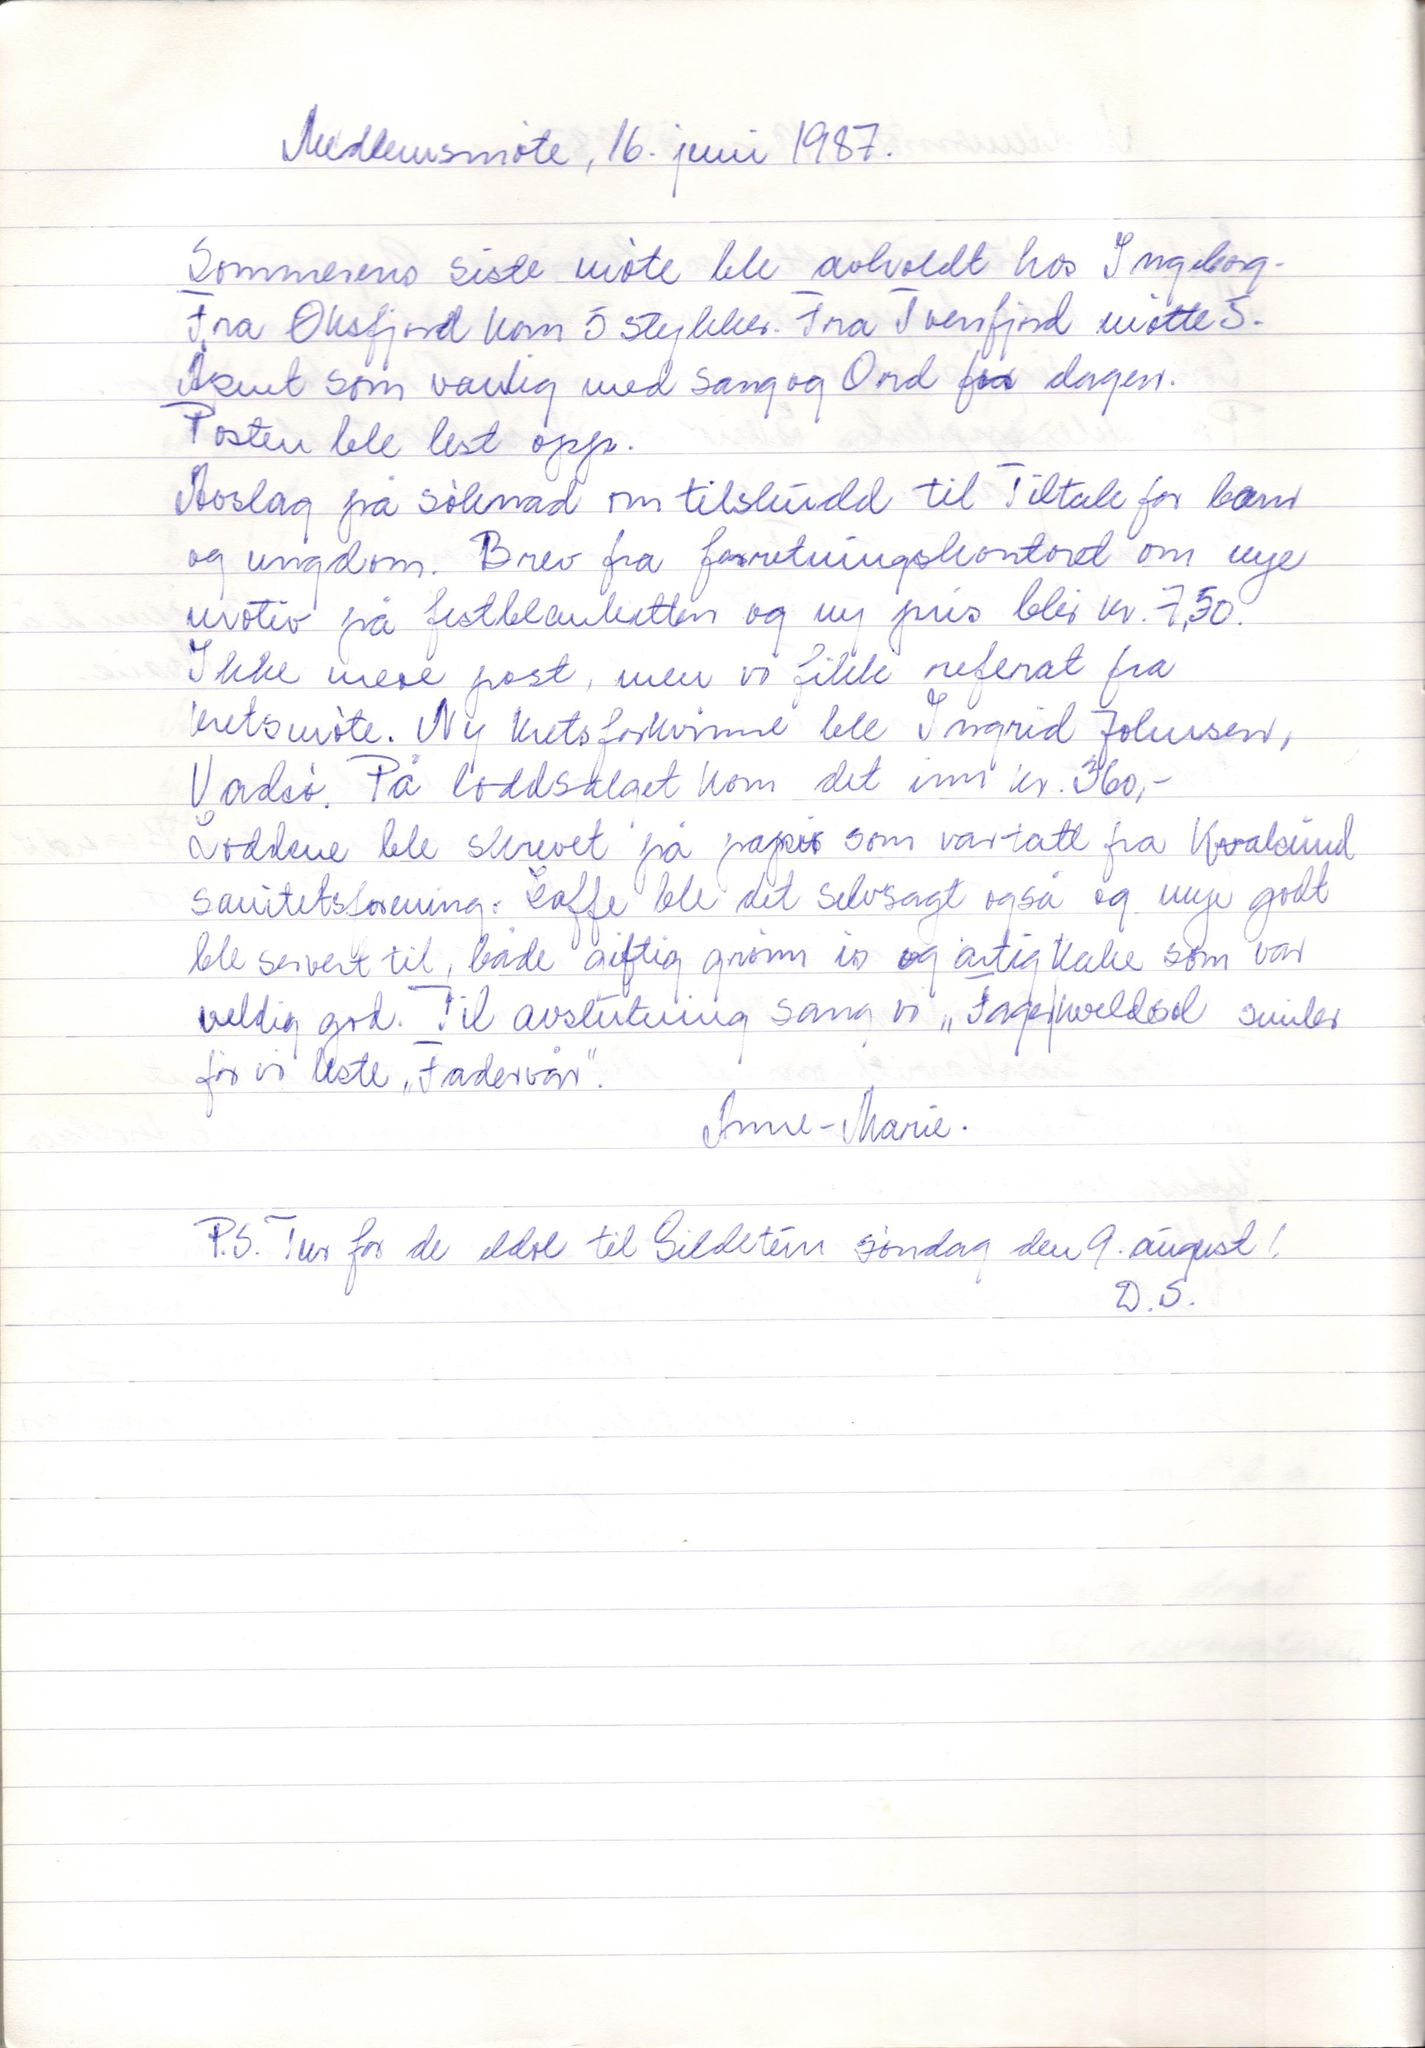 Medlemsmöte, 16. juni 1987.
Sommerens siste möte ble avholdt hos Ingeborg.
Fra Öksfjord kom 5 stykker. Fra Tverrfjord mötte 5.
Åpent som vanlig med sang og Ord for dagen.
Posten ble lest opp.
Avslag på söknad om tilskudd til Tiltak for barn
og ungdom. Brev fra forretningskontoret om nye
motiv på festblanketten og ny pris blir kr. 7,50.
Ikke mere post, men vi fikk referat fra
kretsmöte. Ny kretsforkvinne ble Ingrid Johnsen,
Vadsö. På loddsalget kom det inn kr. 360,-
Loddene ble skrevet på papir som var tatt fra Kvalsund
sanitetsforening. Kaffe ble det selvsagt også og mye godt
ble servert til, både giftig grönn is og artig kake som var
veldig god. Til avslutning sang vi „Fager kveldsol smiler
för vi leste „Fadervår".
Anne-Marie.
P.S. Tur for de eldre til Gildetun söndag den 9. august!
D.S.